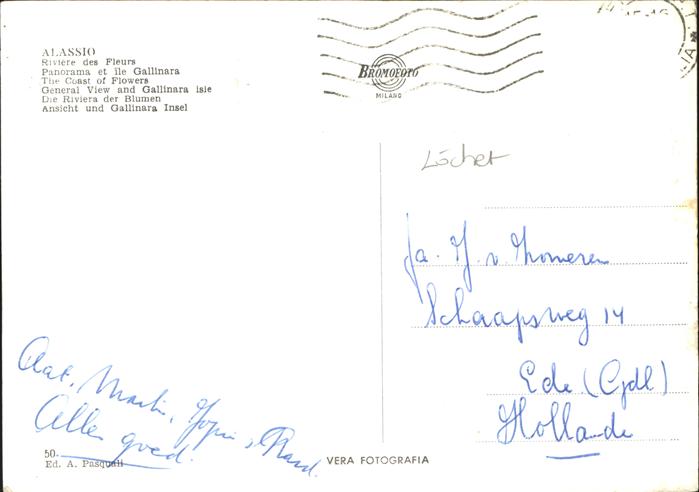 ALASSIO
Rivière des Fleurs
Panorama et île Gallinara
The Coast of Flowers
General View and Gallinara isle
Die Riviera der Blumen
Ansicht und Gallinara Insel
BROMOFOTO
MILANO
Löchet
Fa. H. v. Zomeren
Schaapsweg 14
Ede (Gdl)
Hollande
Aat, Martin, Jopie, Ruud.
Alles goed.
50.
Ed. A. Pasquali
VERA FOTOGRAFIA